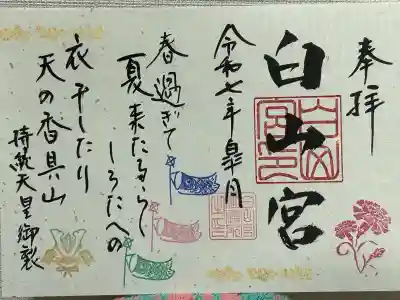 奉拝
白山宮
令和七年皐月
春過ぎて
夏来たるらし
しろたへの
衣干したり
天の香具山
持統天皇御製